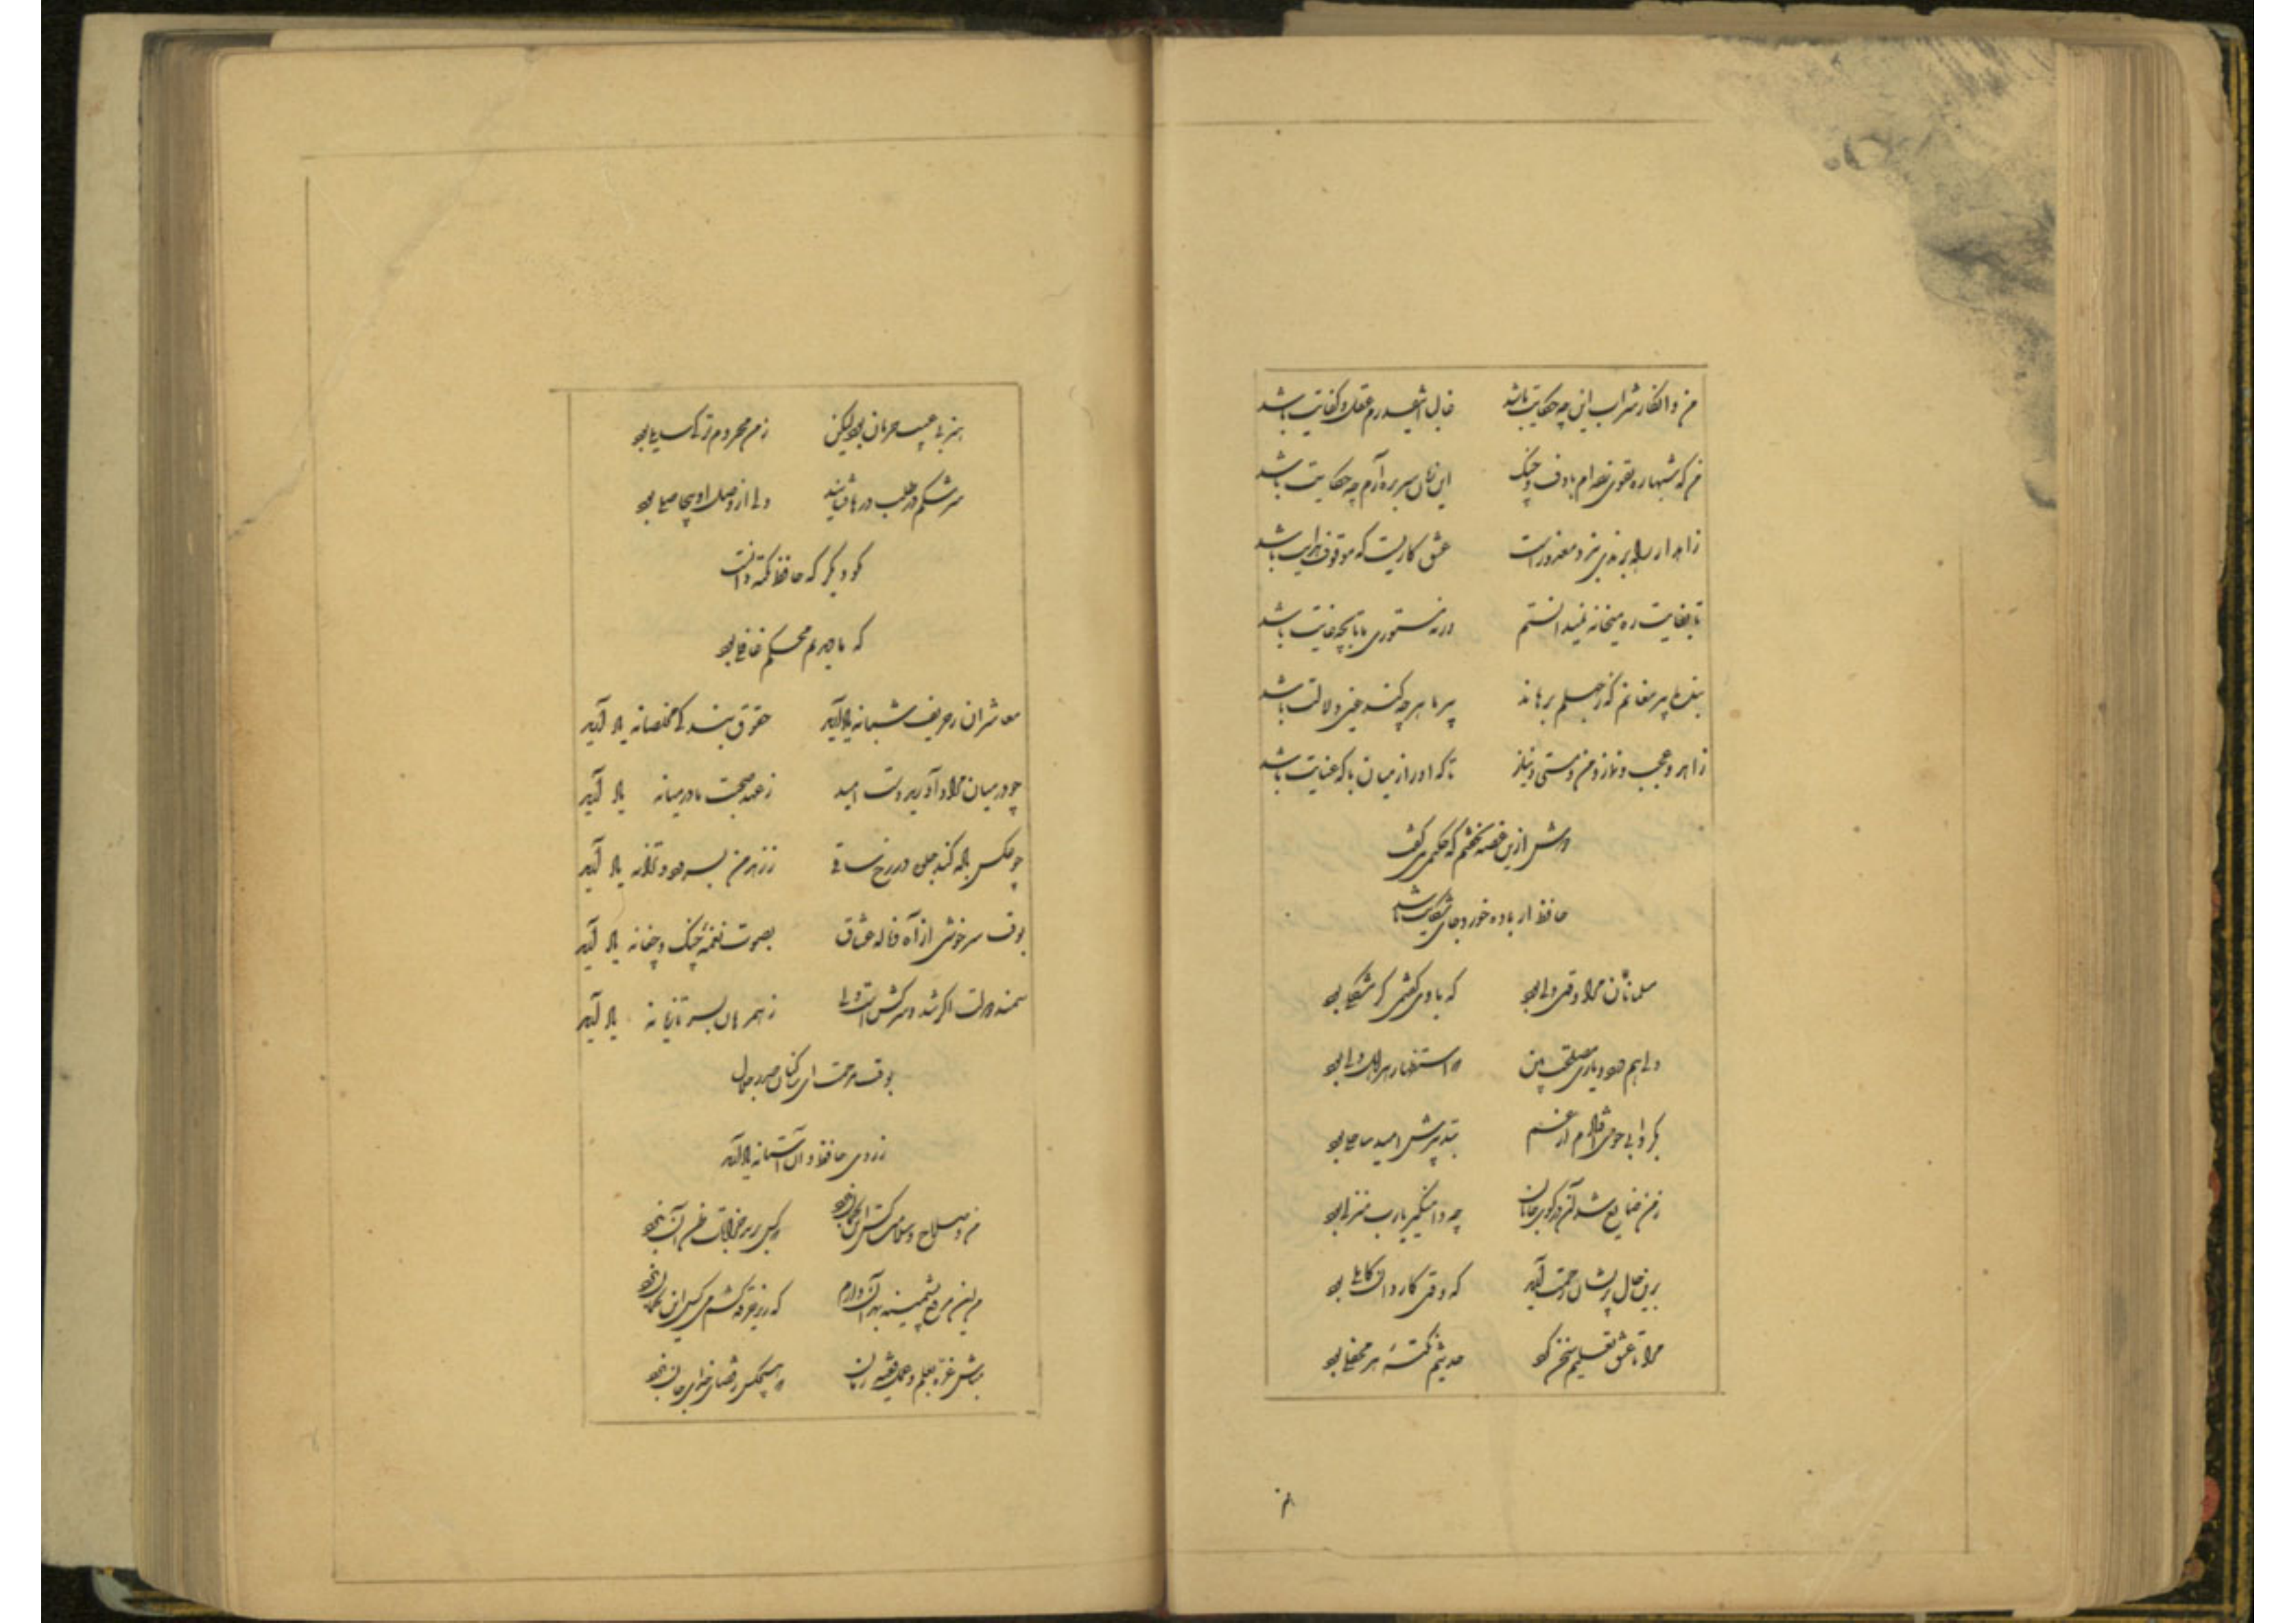 من و انکار شراب این چه حکایت باشد غالبا اینقدرم عقل و کفایت باشد
من که شبها ره تقوی زده‌ام با دف و چنگ این زمان سر بره آرم چه حکایت باشد
زاهد ار راه برندی نبرد معذورست عشق کاریست که موقوف هدایت باشد
تا بغایت ره میخانه نمیدانستم ورنه مستوری ما تا بچه غایت باشد
بنده پیر مغانم که ز جهلم برهاند پیر ما هر چه کند عین ولایت باشد
زاهد و عجب و نماز و من و مستی و نیاز تا که او را ز میان با که عنایت باشد
دوش ازین غصه نخفتم که حکیمی میگفت
حافظ ار باده خورد جای شکایت باشد
مسلمانان مرا وقتی دلی بود که با وی گفتمی گر مشکلی بود
دلی همدرد و یاری مصلحت بین که استظهار هر اهل دلی بود
بگردابی چو می‌افتادم از غم بتدبیرش امید ساحلی بود
ز من ضایع شد اندر کوی جانان چه دامنگیر یارب منزلی بود
برین حال پریشان رحمت آرید که وقتی کاردانی کاملی بود
مرا تا عشق تعلیم سخن کرد حدیثم نکتهٔ هر محفلی بود
هنر بی عیب حرمان نبود لیکن ز من محروم‌تر کی سایلی بود
سرشکم در طلب درها فشانید ولی از وصل او بیحاصلی بود
مگو دیگر که حافظ نکته دانست
که ما دیدیم محکم غافلی بود
معاشران ز حریف شبانه یاد آرید حقوق بندگی مخلصانه یاد آرید
چو در میان مراد آورید دست امید ز عهد صحبت ما در میانه یاد آرید
چو عکس باده کند جلوه در رخ ساقی ز من بسرود و ترانه یاد آرید
بوقت سرخوشی از آه و ناله عشاق بصوت نغمهٔ چنگ و چغانه یاد آرید
سمند دولت اگر چند سرکش است ولی ز همرهان بسر تازیانه یاد آرید
بوقت مرحمت ای ساکنان صدر جلال
ز روی حافظ و آن آستانه یاد آرید
من و صلاح و سلامت کس این گمان نبرد که کس برند خرابات ظن آن نبرد
من این مرقع پشمینه بهر آن دارم که زیر خرقه کشم می کس این گمان نبرد
مباش غره بعلم و عمل فقیه زمان که هیچکس ز قضای خدای جان نبرد